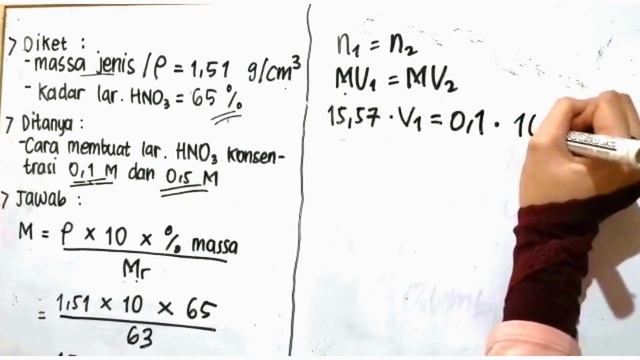 > Diket :
- massa jenis / ρ = 1,51 g/cm³
- Kadar lar. HNO₃ = 65 %
> Ditanya :
- Cara membuat lar. HNO₃ Konsen-
trasi 0,1 M dan 0,5 M
> Jawab :
M = ρ × 10 × % massa
Mr
= 1,51 × 10 × 65
63
n₁ = n₂
MV₁ = MV₂
15,57 · V₁ = 0,1 ·